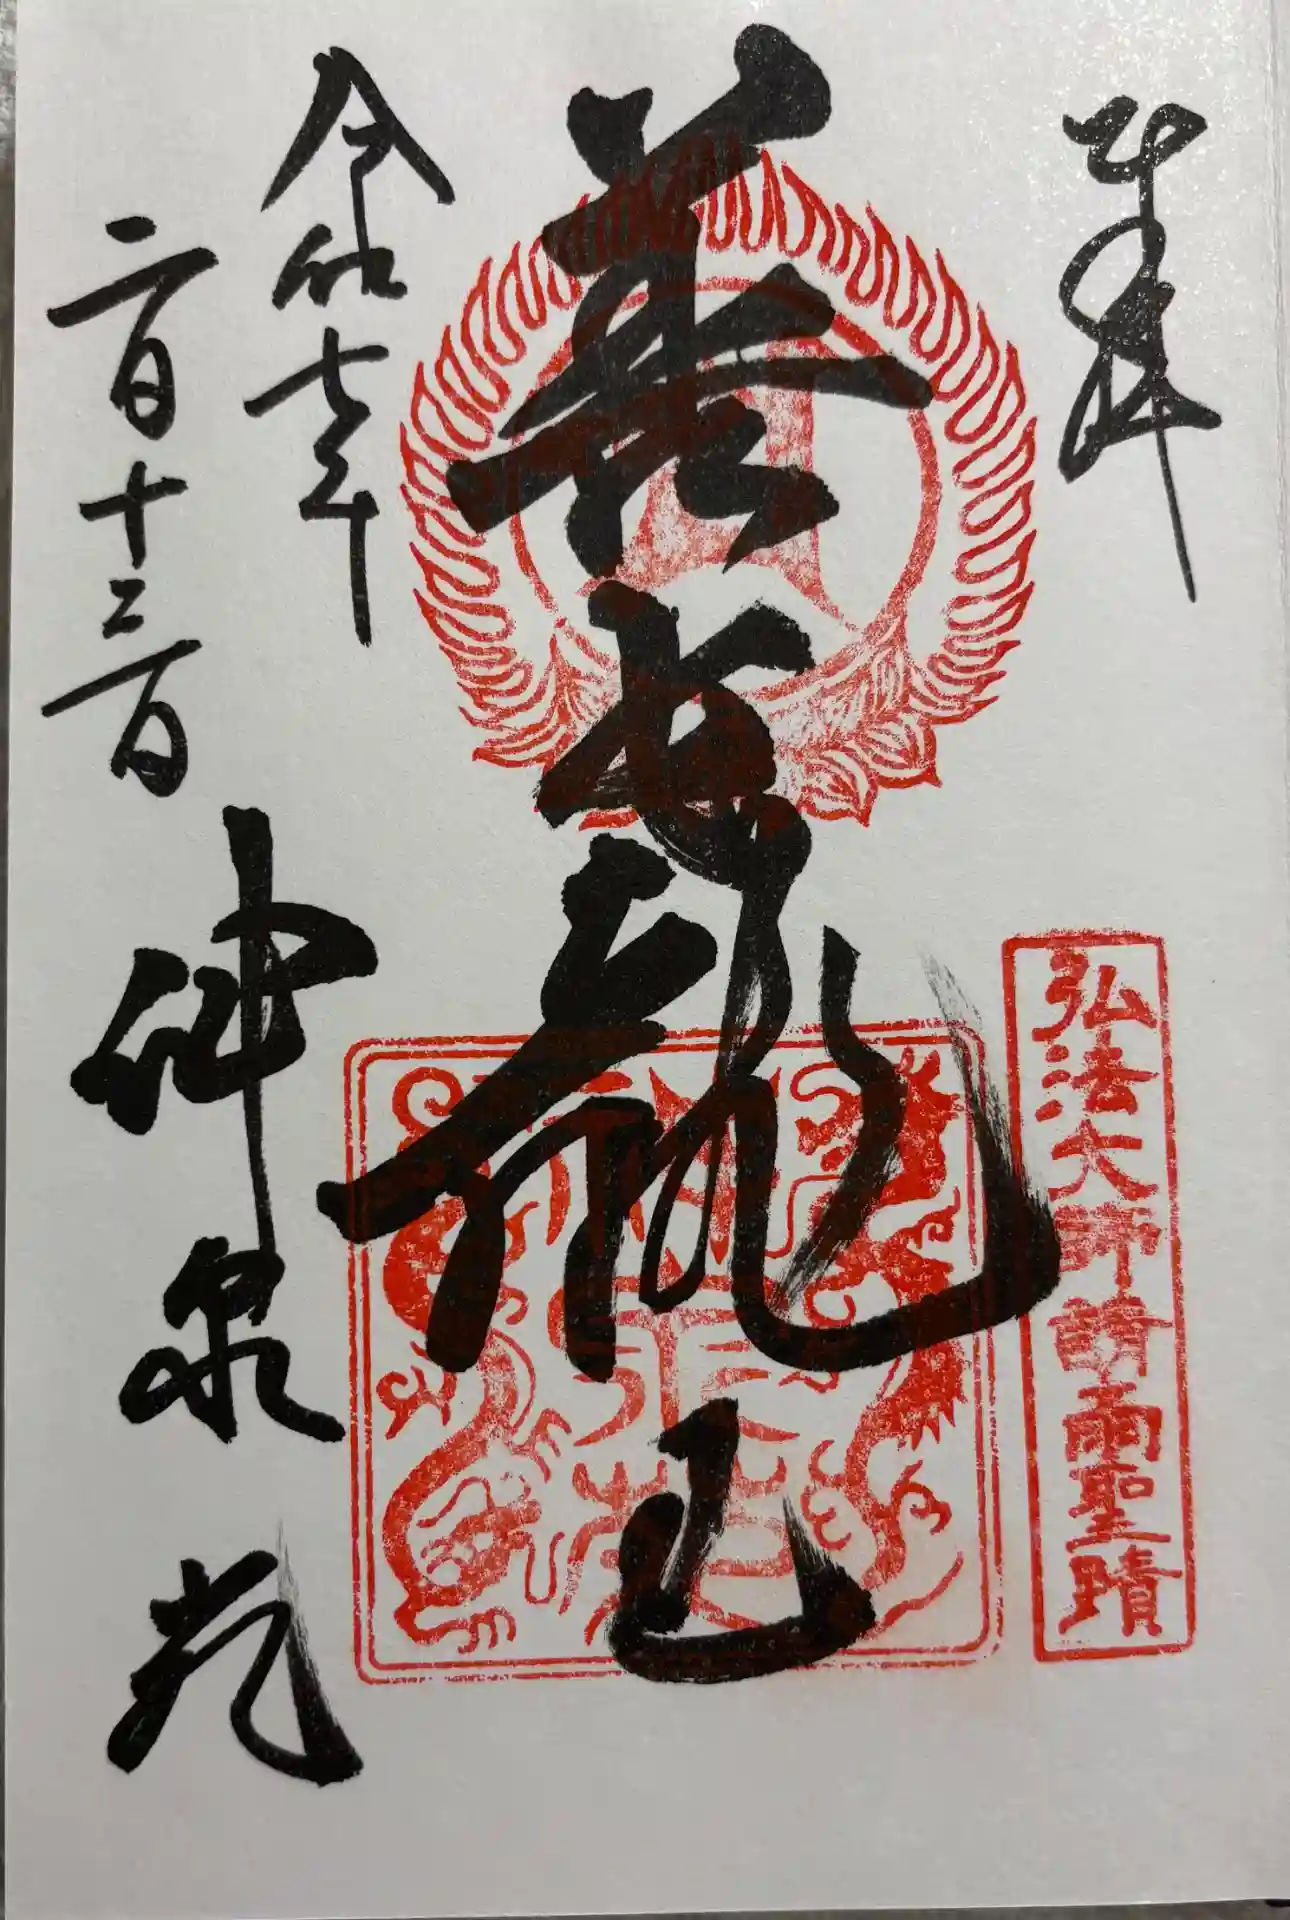 奉拝
弘法大師請雨聖蹟
善女龍王
令和七年
二月十三日
神泉苑